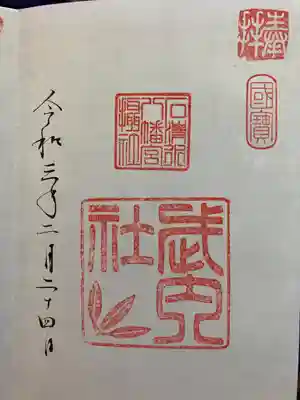 奉拝
國寶
石清水
八幡宮
攝社
武内
社
令和三年二月二十四日